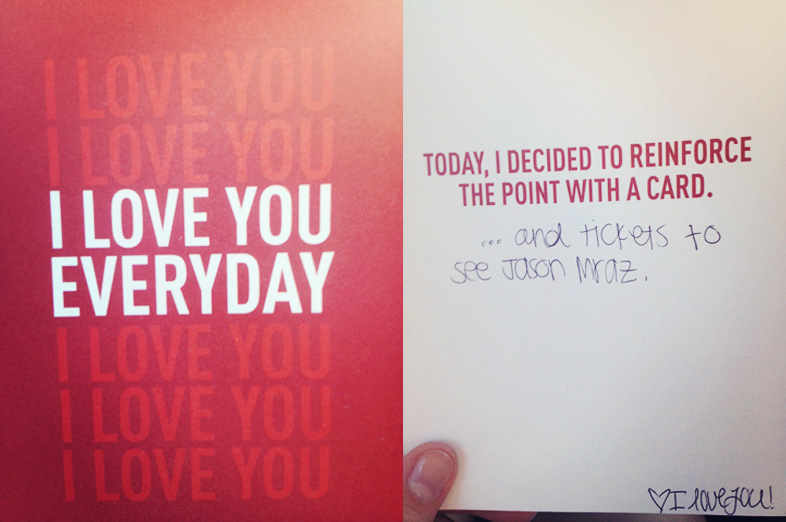 I LOVE YOU
I LOVE YOU
I LOVE YOU
EVERYDAY
I LOVE YOU
I LOVE YOU
I LOVE YOU
TODAY, I DECIDED TO REINFORCE
THE POINT WITH A CARD.
... and tickets to
see Jason Mraz.
♡I love you!